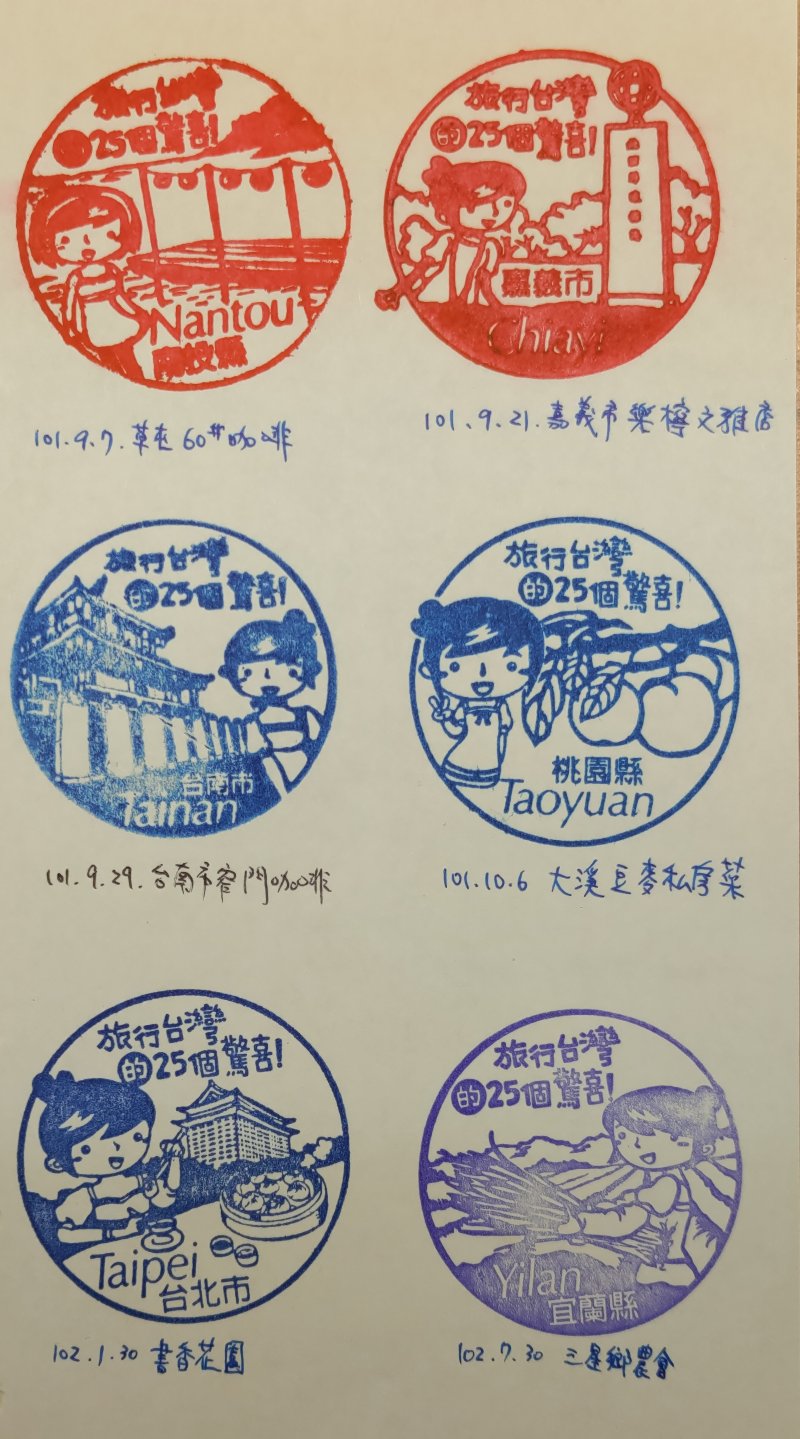 旅行台灣
的25個驚喜!
Nantou
南投縣
101.9.7.草屯60#咖啡
旅行台灣
的25個驚喜!
嘉義市
Chiayi
101.9.21.嘉義市樂檸文雅店
旅行台灣
的25個驚喜!
台南市
Tainan
101.9.29.台南市窄門咖啡
旅行台灣
的25個驚喜!
桃園縣
Taoyuan
101.10.6 大溪豆麥私房菜
旅行台灣
的25個驚喜!
Taipei
台北市
102.1.30 書香花園
旅行台灣
的25個驚喜!
Yilan
宜蘭縣
102.7.30 三星鄉農會